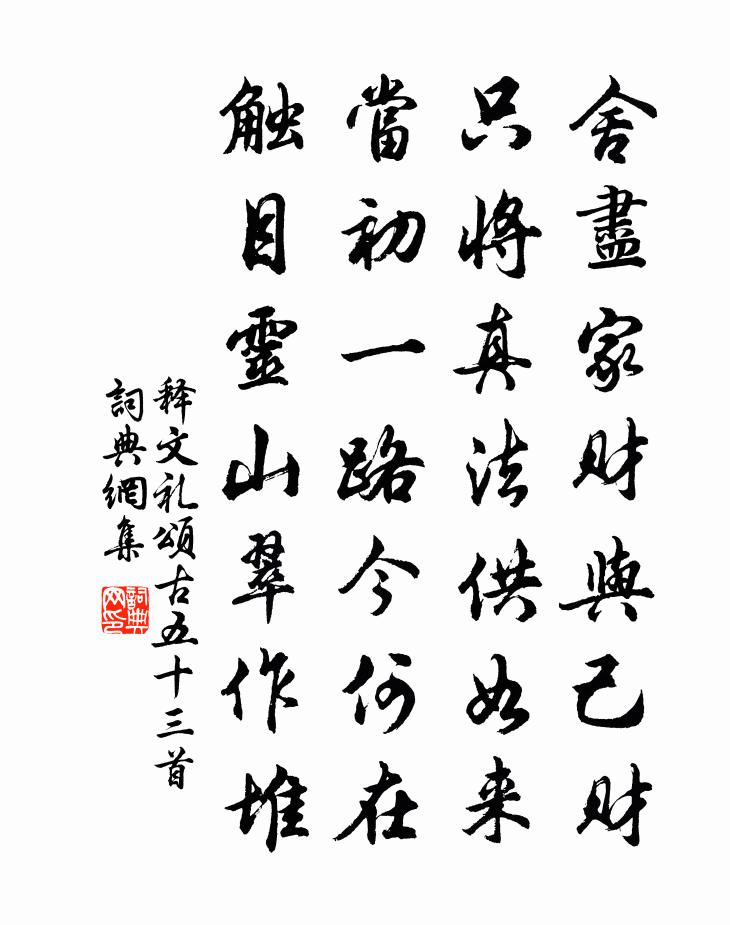 舍盡家财與己财
只将真法供如来
當初一路今何在
触目靈山翠作堆
释文礼頌古五十三首
詞典網集
詞典网印